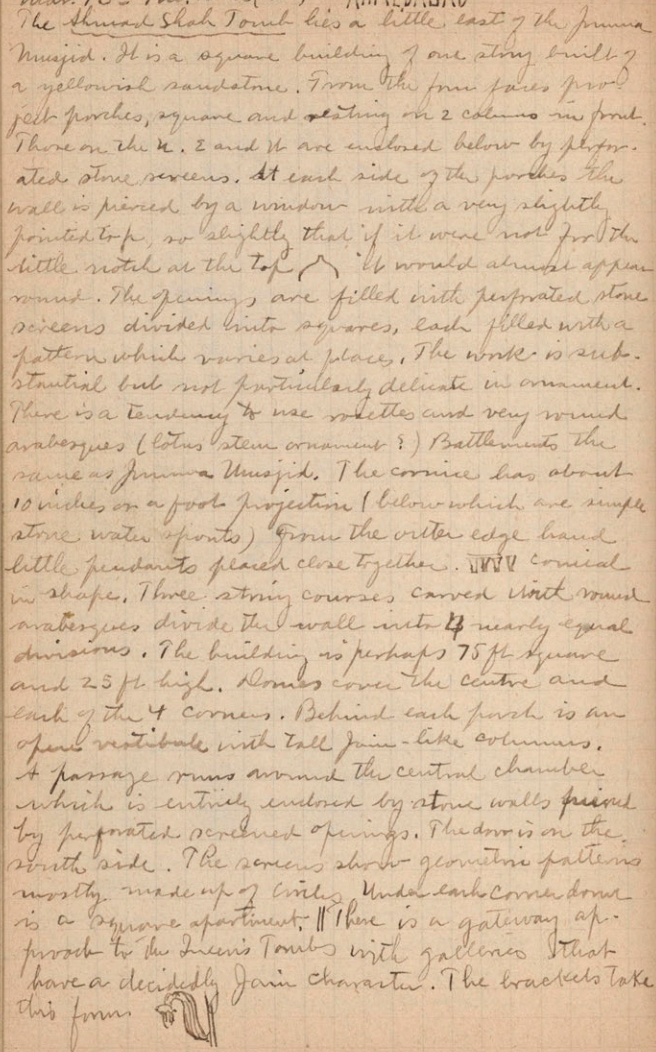 AHMEDABAD
The Ahmad Shah Tomb lies a little east of the Jumma
Musjid. It is a square building of one story built of
a yellowish sandstone. From the four faces pro-
ject porches, square and resting on 2 colums in front.
Those on the N. E and W are enclosed below by perfor-
ated stone screens. At each side of the porches the
wall is pierced by a window with a very slightly
pointed top, so slightly that if it were not for the
little notch at the top it would almost appear
round. The openings are filled with perforated stone
screens divided into squares, each filled with a
pattern which varies at places. The work is sub-
stantial but not particularly delicate in ornament.
There is a tendency to use rosettes and very round
arabesques (lotus stem ornament?) Battlements the
same as Jumma Musjid. The cornice has about
10 inches or a foot projection (below which are simple
stone water spouts) from the outer edge hand
little pendants placed close together. conical
in shape. Three string courses carved with round
arabesques divide the wall into 4 nearly equal
divisions. The building is perhaps 75 ft square
and 25 ft high. Domes cover the centre and
each of the 4 corners. Behind each porch is an
open vestibule with tall Jain-like columns.
A passage runs around the central chamber
which is entirely enclosed by stone walls pierced
by perforated screened openings. The door is on the
south side. The screens show geometric patterns
mostly made up of circles Under each corner dome
is a square apartment. || There is a gateway ap-
proach to the Queens Tombs with galleries that
have a decidedly Jain character. The brackets take
this form